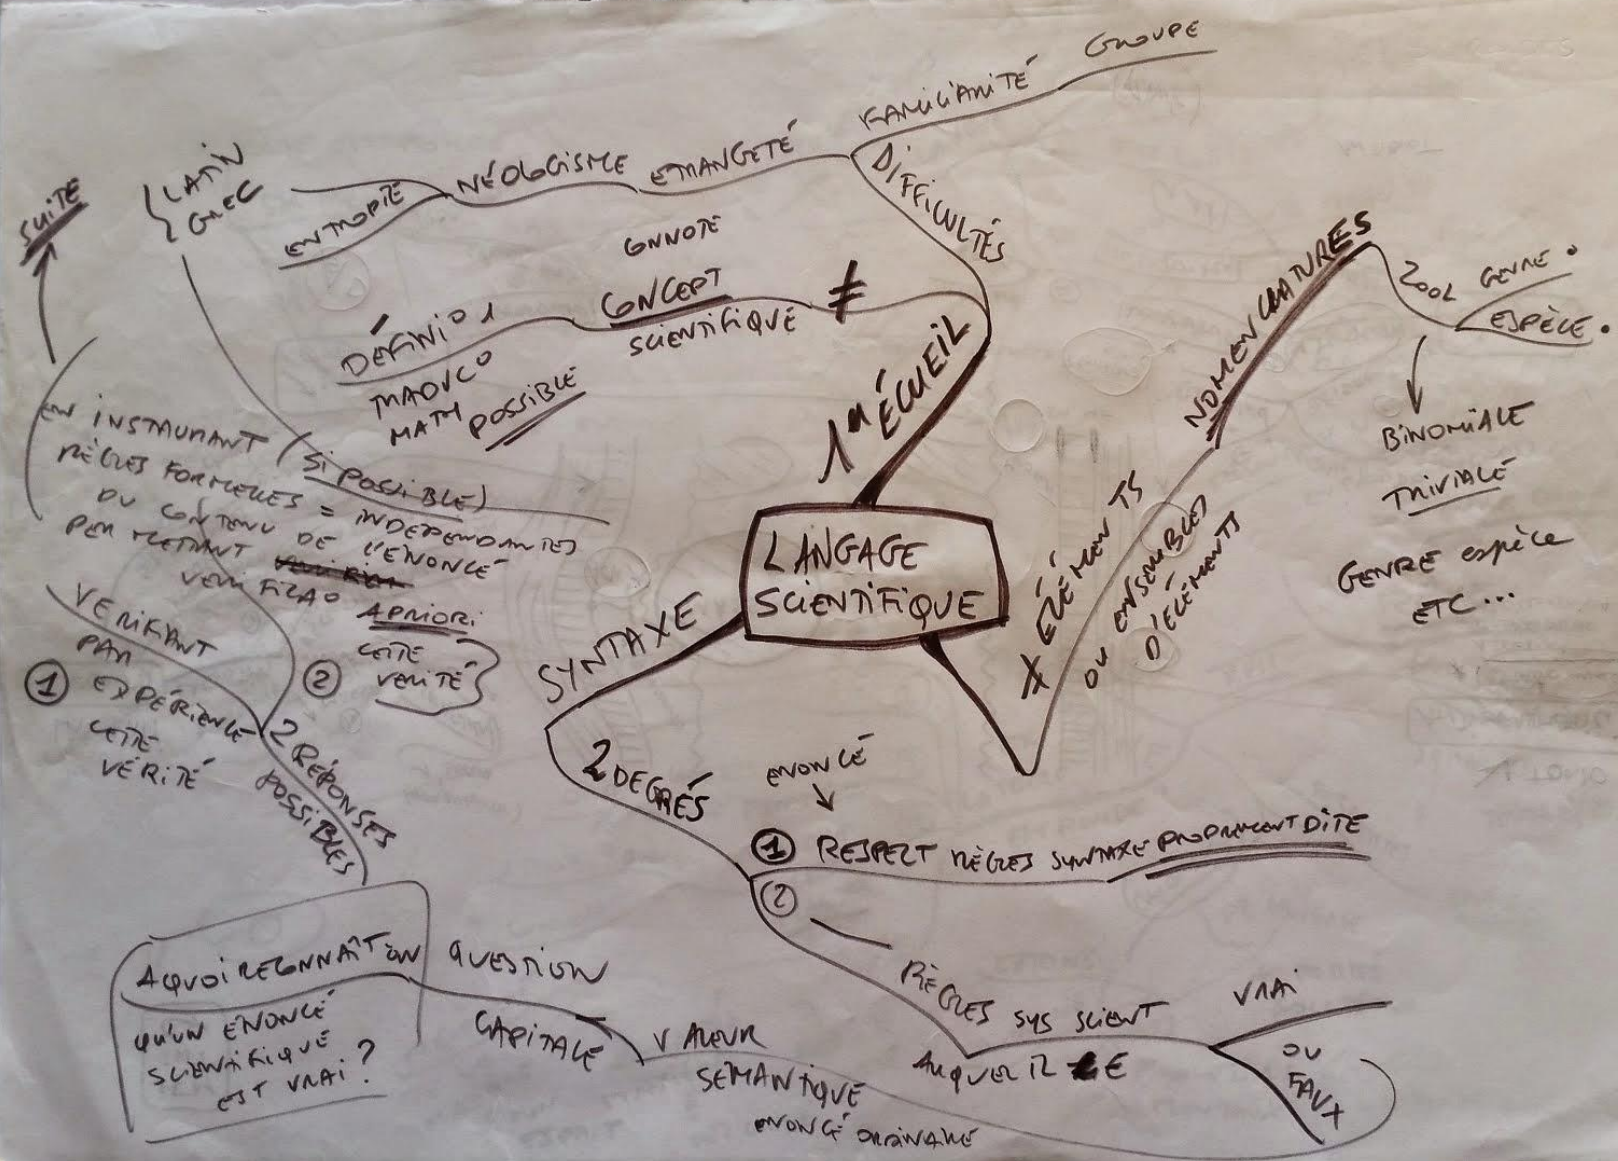 LANGAGE
SCIENTIFIQUE
1er ÉCUEIL
DIFFICULTÉS
FAMILIARITÉ GROUPE
ETRANGETÉ
NÉOLOGISME
ENTROPIE
{ LATIN
GREC
≠
CONNOTÉ
CONCEPT
SCIENTIFIQUE
DÉFINI°
TRADUC°
MATH
POSSIBLE
NOMENCLATURES
X ELÉMENTS
OU ENSEMBLES
D'ÉLÉMENTS
ZOOL
GENRE.
ESPÈCE.
BINOMIALE
TRIVIALE
GENRE espèce
ETC...
SYNTAXE
2 DEGRÉS
ENONCÉ
① RESPECT RÈGLES SYNTAXE PROPREMENT DITE
②
RÈGLES SYS SCIENT
AUQUEL IL E
VRAI
OU
FAUX
VALEUR
SÉMANTIQUE
ENONCÉ ORDINAIRE
QUESTION
CAPITALE
A QUOI RECONNAÎT ON
QU'UN ÉNONCÉ
SCIENTIFIQUE
EST VRAI ?
2 RÉPONSES
POSSIBLES
①
VERIFIANT
PAR
EXPÉRIENCE
CETTE
VÉRITÉ
②
EN INSTAURANT (SI POSSIBLE)
RÈGLES FORMELLES = INDEPENDANTES
DU CONTENU DE L'ÉNONCÉ
PERMETTANT
VERIFICA°
A PRIORI
CETTE
VERITÉ }
SUITE